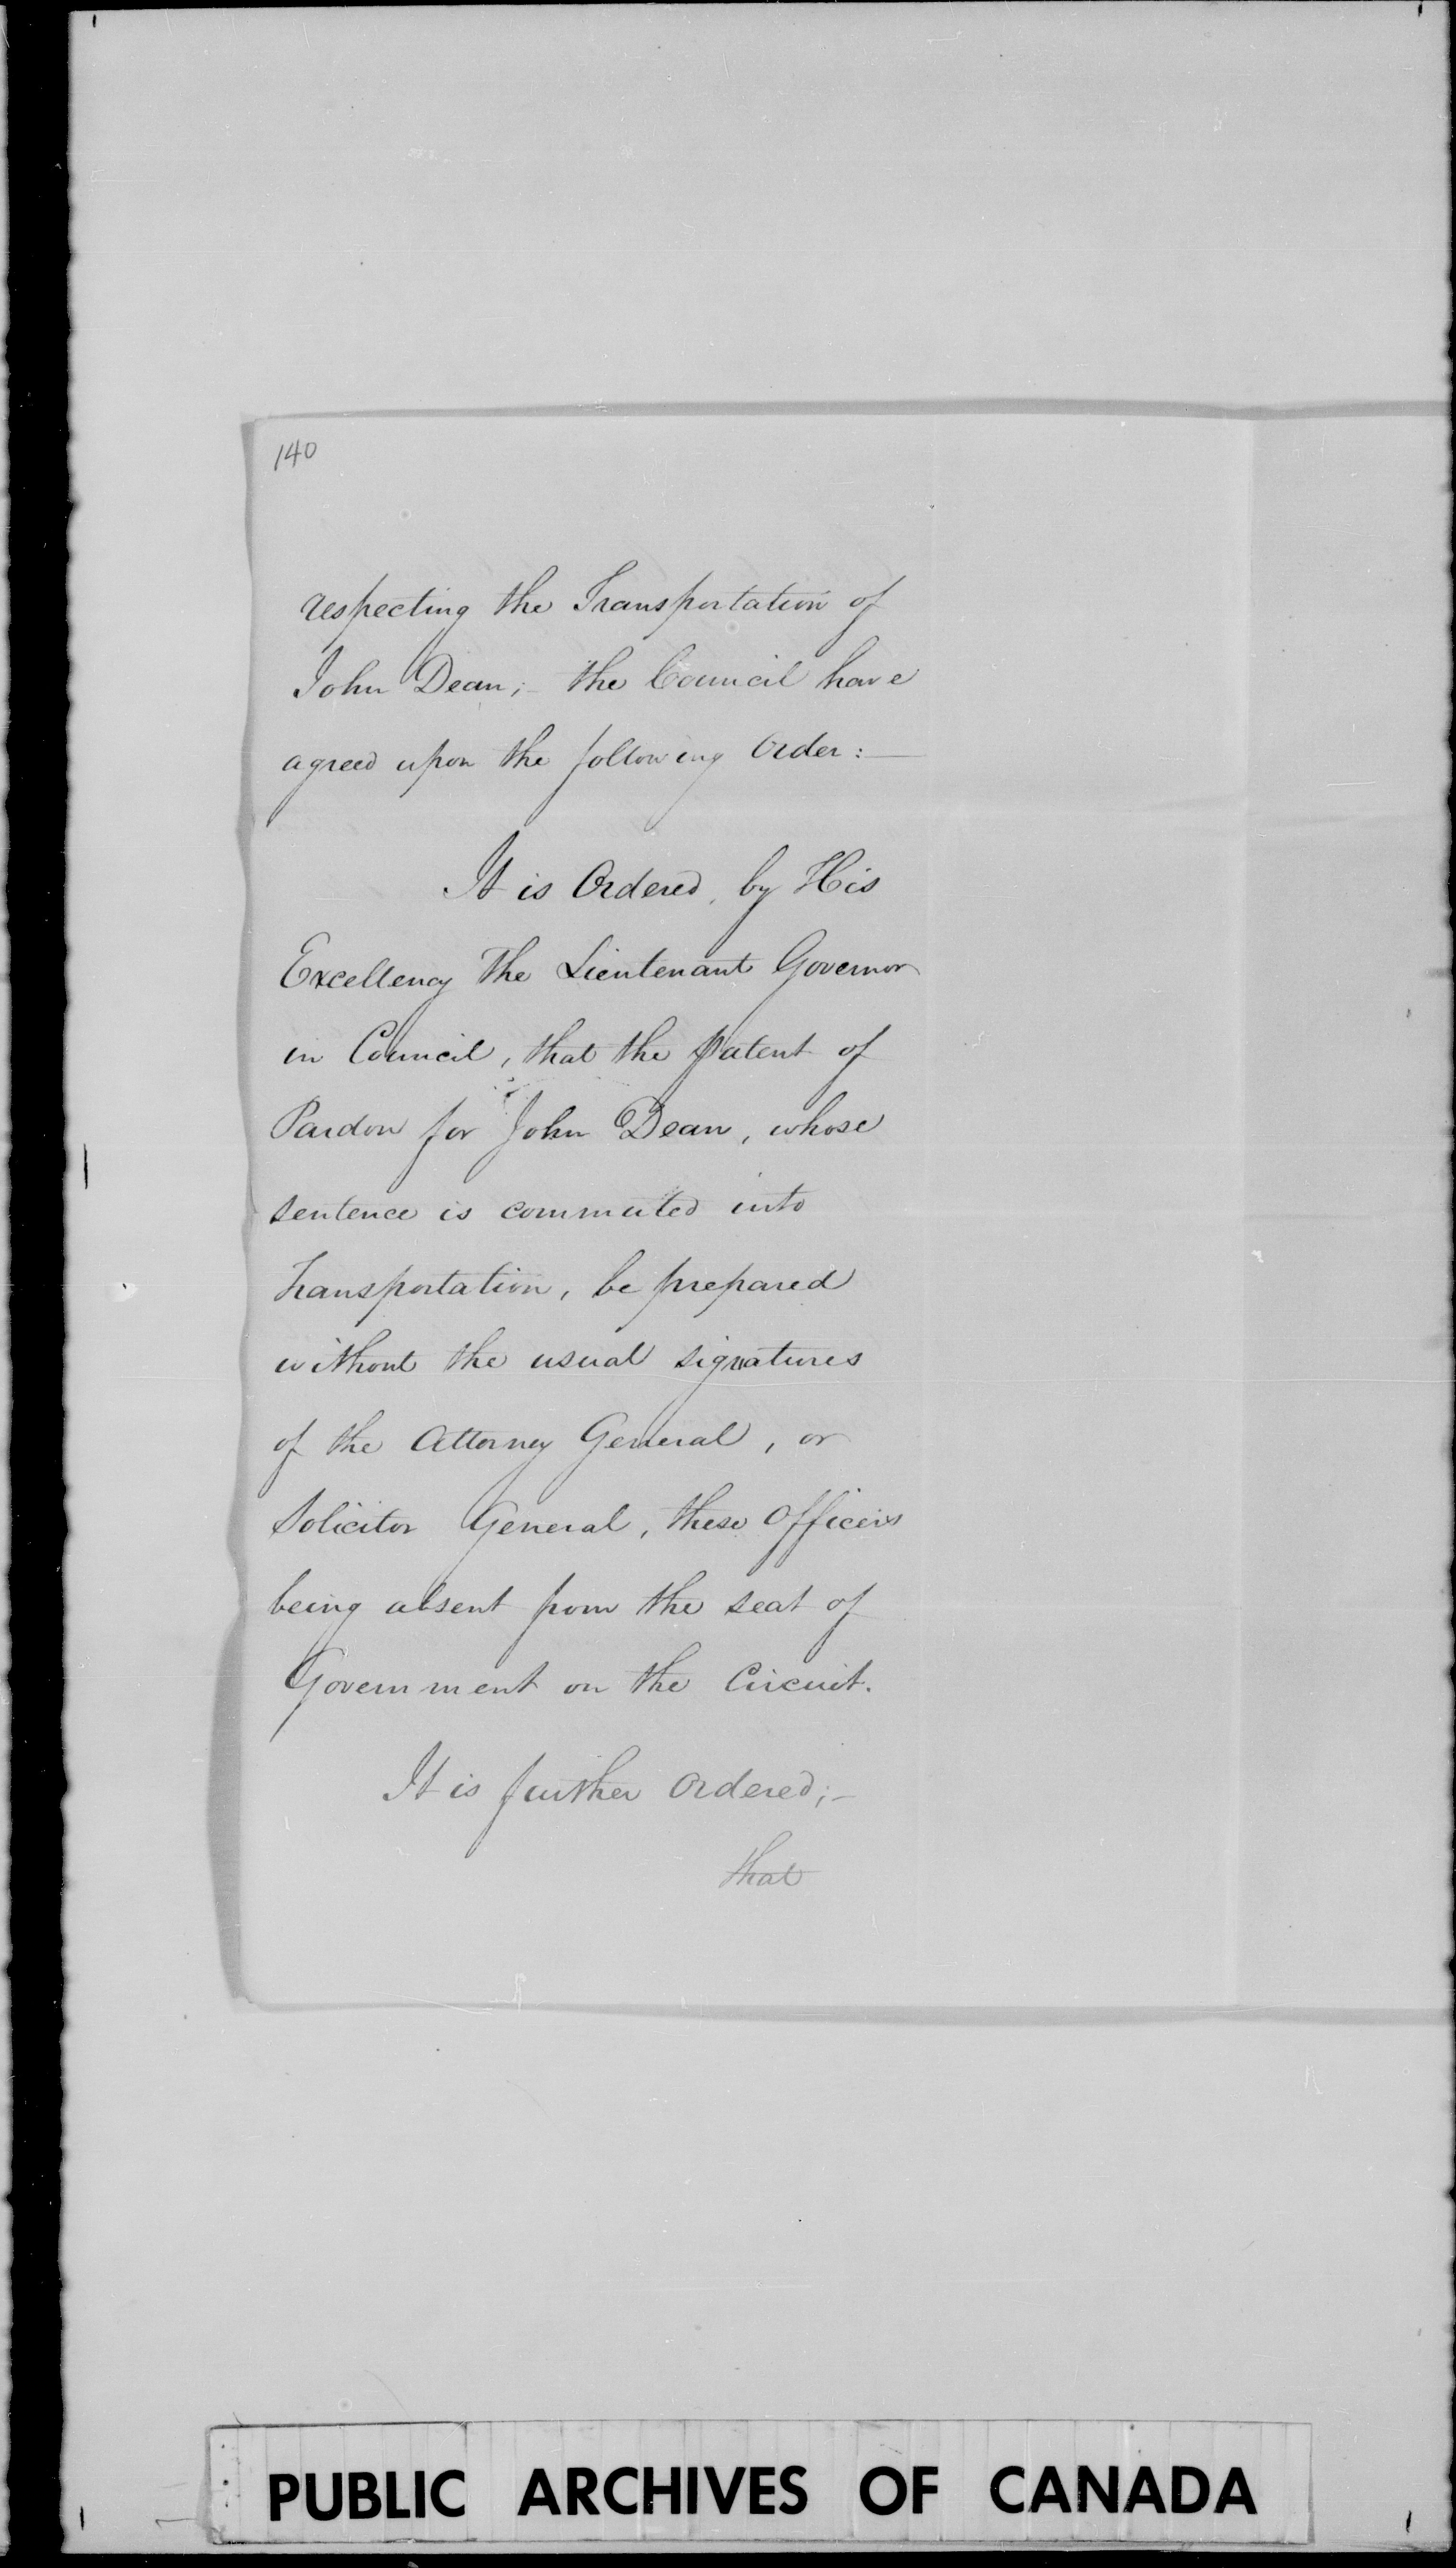 140
respecting the Transportation of
John Dean;– the Council have
agreed upon the following Order:—
It is Ordered, by His
Excellency The Lieutenant Governor
in Council, that the patent of
Pardon for John Dean, whose
sentence is commuted into
Transportation, be prepared
without the usual signatures
of the Attorney General, or
Solicitor General, these Officers
being absent from the seat of
Government on the Circuit.
It is further Ordered;–
that
PUBLIC ARCHIVES OF CANADA